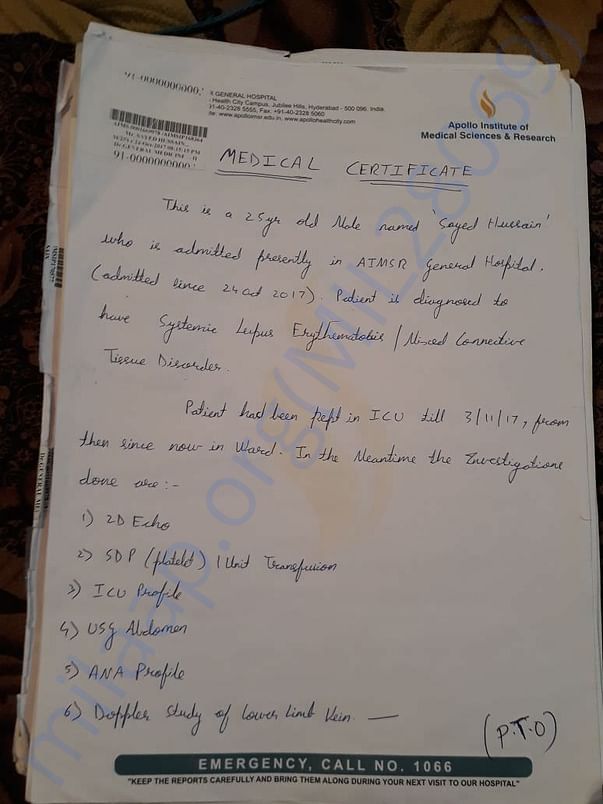 91-0000000000
X GENERAL HOSPITAL
Health City Campus, Jubilee Hills, Hyderabad - 500 096. India.
91-40-2328 5555, Fax: +91-40-2328 5060
www.apolloimsr.edu.in, www.apollohealthcity.com
Apollo Institute of
Medical Sciences & Research
Mr. SAYED HUSSAIN
Dr.GENERAL MEDICINE - II
91-0000000000
MEDICAL CERTIFICATE
This is a 25yr old Male named 'Sayed Hussain'
who is admitted presently in AIMSR General Hospital.
(admitted since 24 Oct 2017). Patient is diagnosed to
have Systemic Lupus Erythematosis / Mixed Connective
Tissue Disorder.
Patient had been kept in ICU till 3/11/17, from
then since now in Ward. In the Meantime the Investigations
done are :-
1) 2D Echo
2) SDP (platelet) 1 Unit Transfusion
3) ICU Profile
4) USG Abdomen
5) ANA Profile
6) Doppler Study of Lower Limb Vein. —
(P.T.O)
EMERGENCY, CALL NO. 1066
"KEEP THE REPORTS CAREFULLY AND BRING THEM ALONG DURING YOUR NEXT VISIT TO OUR HOSPITAL"